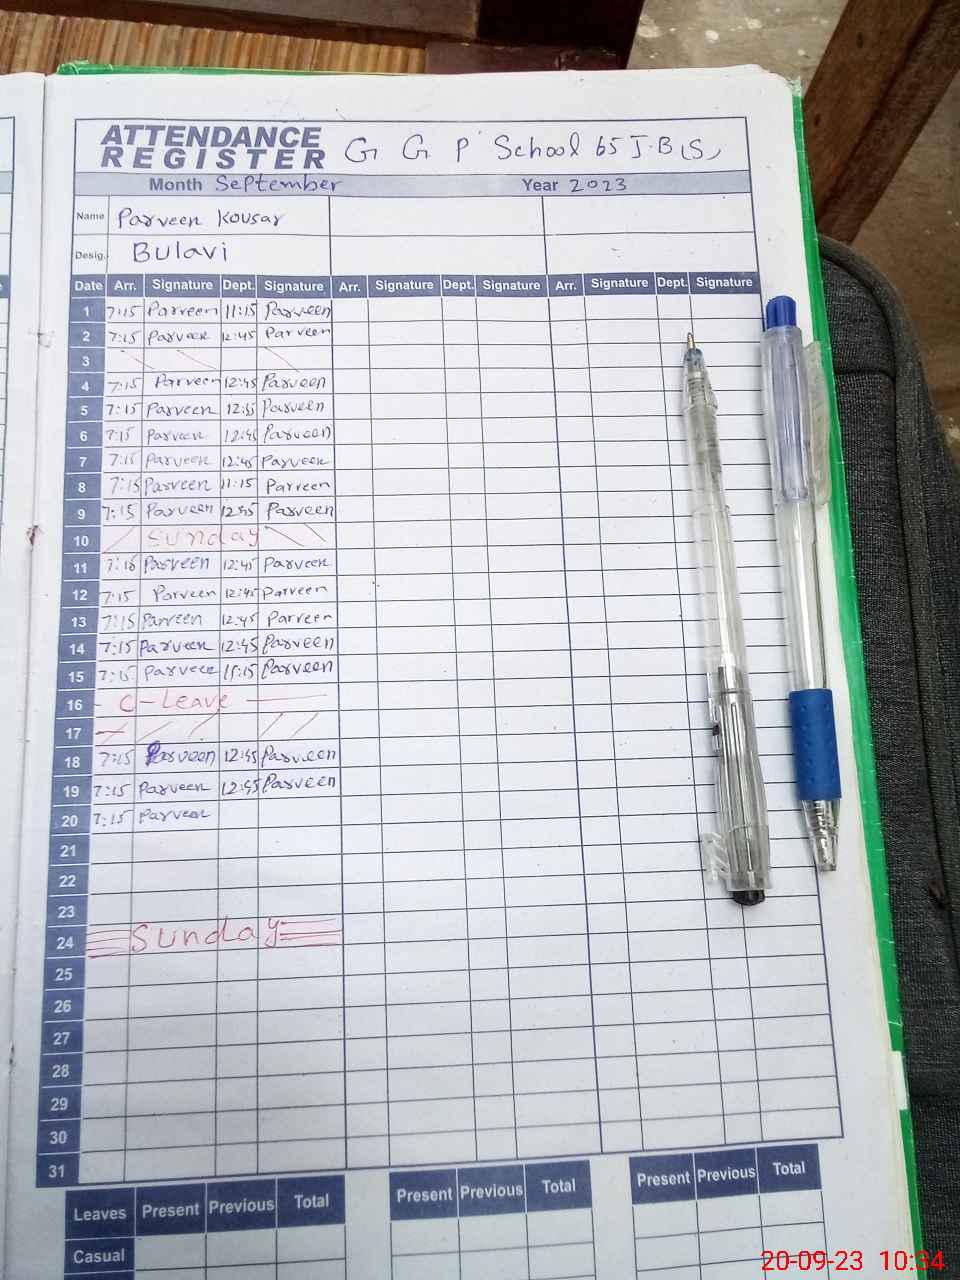 ATTENDANCE
REGISTER G G P School 65 J.B(S)
Month September Year 2023
Name Parveen Kousar
Desig. Bulavi
Date Arr. Signature Dept. Signature Arr. Signature Dept. Signature Arr. Signature Dept. Signature
1 7:15 Parveen 11:15 Parveen
2 7:15 Parveen 12:45 Parveen
3
4 7:15 Parveen 12:45 Parveen
5 7:15 Parveen 12:45 Parveen
6 7:15 Parveen 12:45 Parveen
7 7:15 Parveen 12:45 Parveen
8 7:15 Parveen 11:15 Parveen
9 7:15 Parveen 12:45 Parveen
10 Sunday
11 7:15 Parveen 12:45 Parveen
12 7:15 Parveen 12:45 Parveen
13 7:15 Parveen 12:45 Parveen
14 7:15 Parveen 12:45 Parveen
15 7:15 Parveen 11:15 Parveen
16 C-Leave
17
18 7:15 Parveen 12:45 Parveen
19 7:15 Parveen 12:45 Parveen
20 7:15 Parveen
21
22
23
24 Sunday
25
26
27
28
29
30
31
Leaves Present Previous Total Present Previous Total Present Previous Total
Casual
20-09-23 10:34